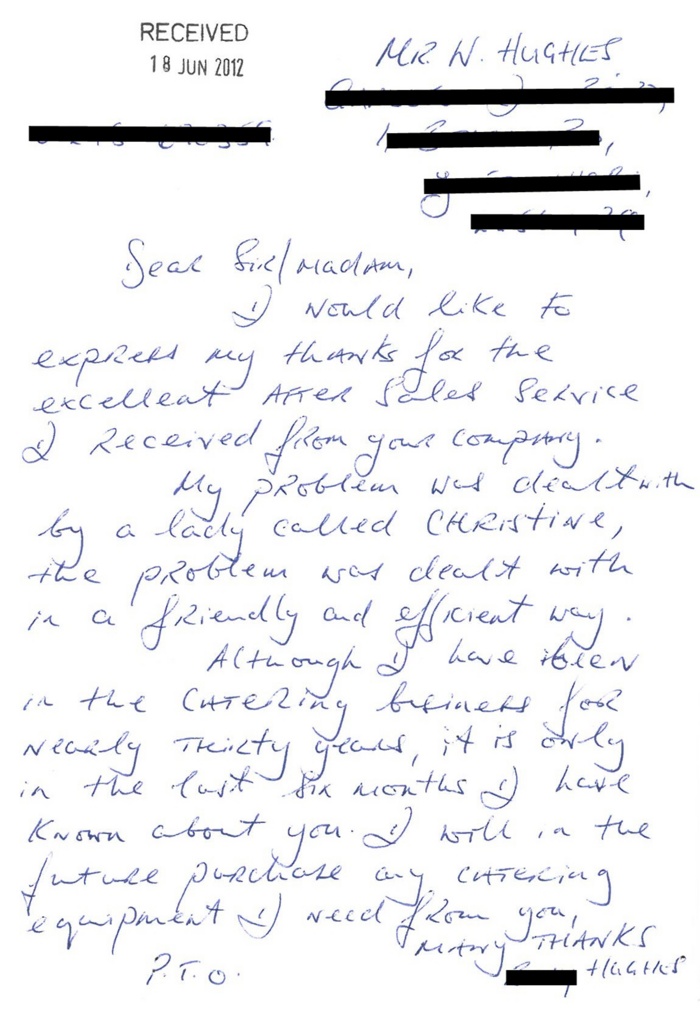 RECEIVED
18 JUN 2012
MR. W. HUGHES
Dear Sir/Madam,
I would like to
express my thanks for the
excellent AFTER Sales Service
I Received from your company.
My problem was dealt with
by a lady called CHRISTINE,
the problem was dealt with
in a friendly and efficient way.
Although I have been
in the CATERING business for
nearly THIRTY years, it is only
in the last six months I have
known about you. I will in the
future purchase any CATERING
equipment I need from you,
MANY THANKS
HUGHES
P.T.O.